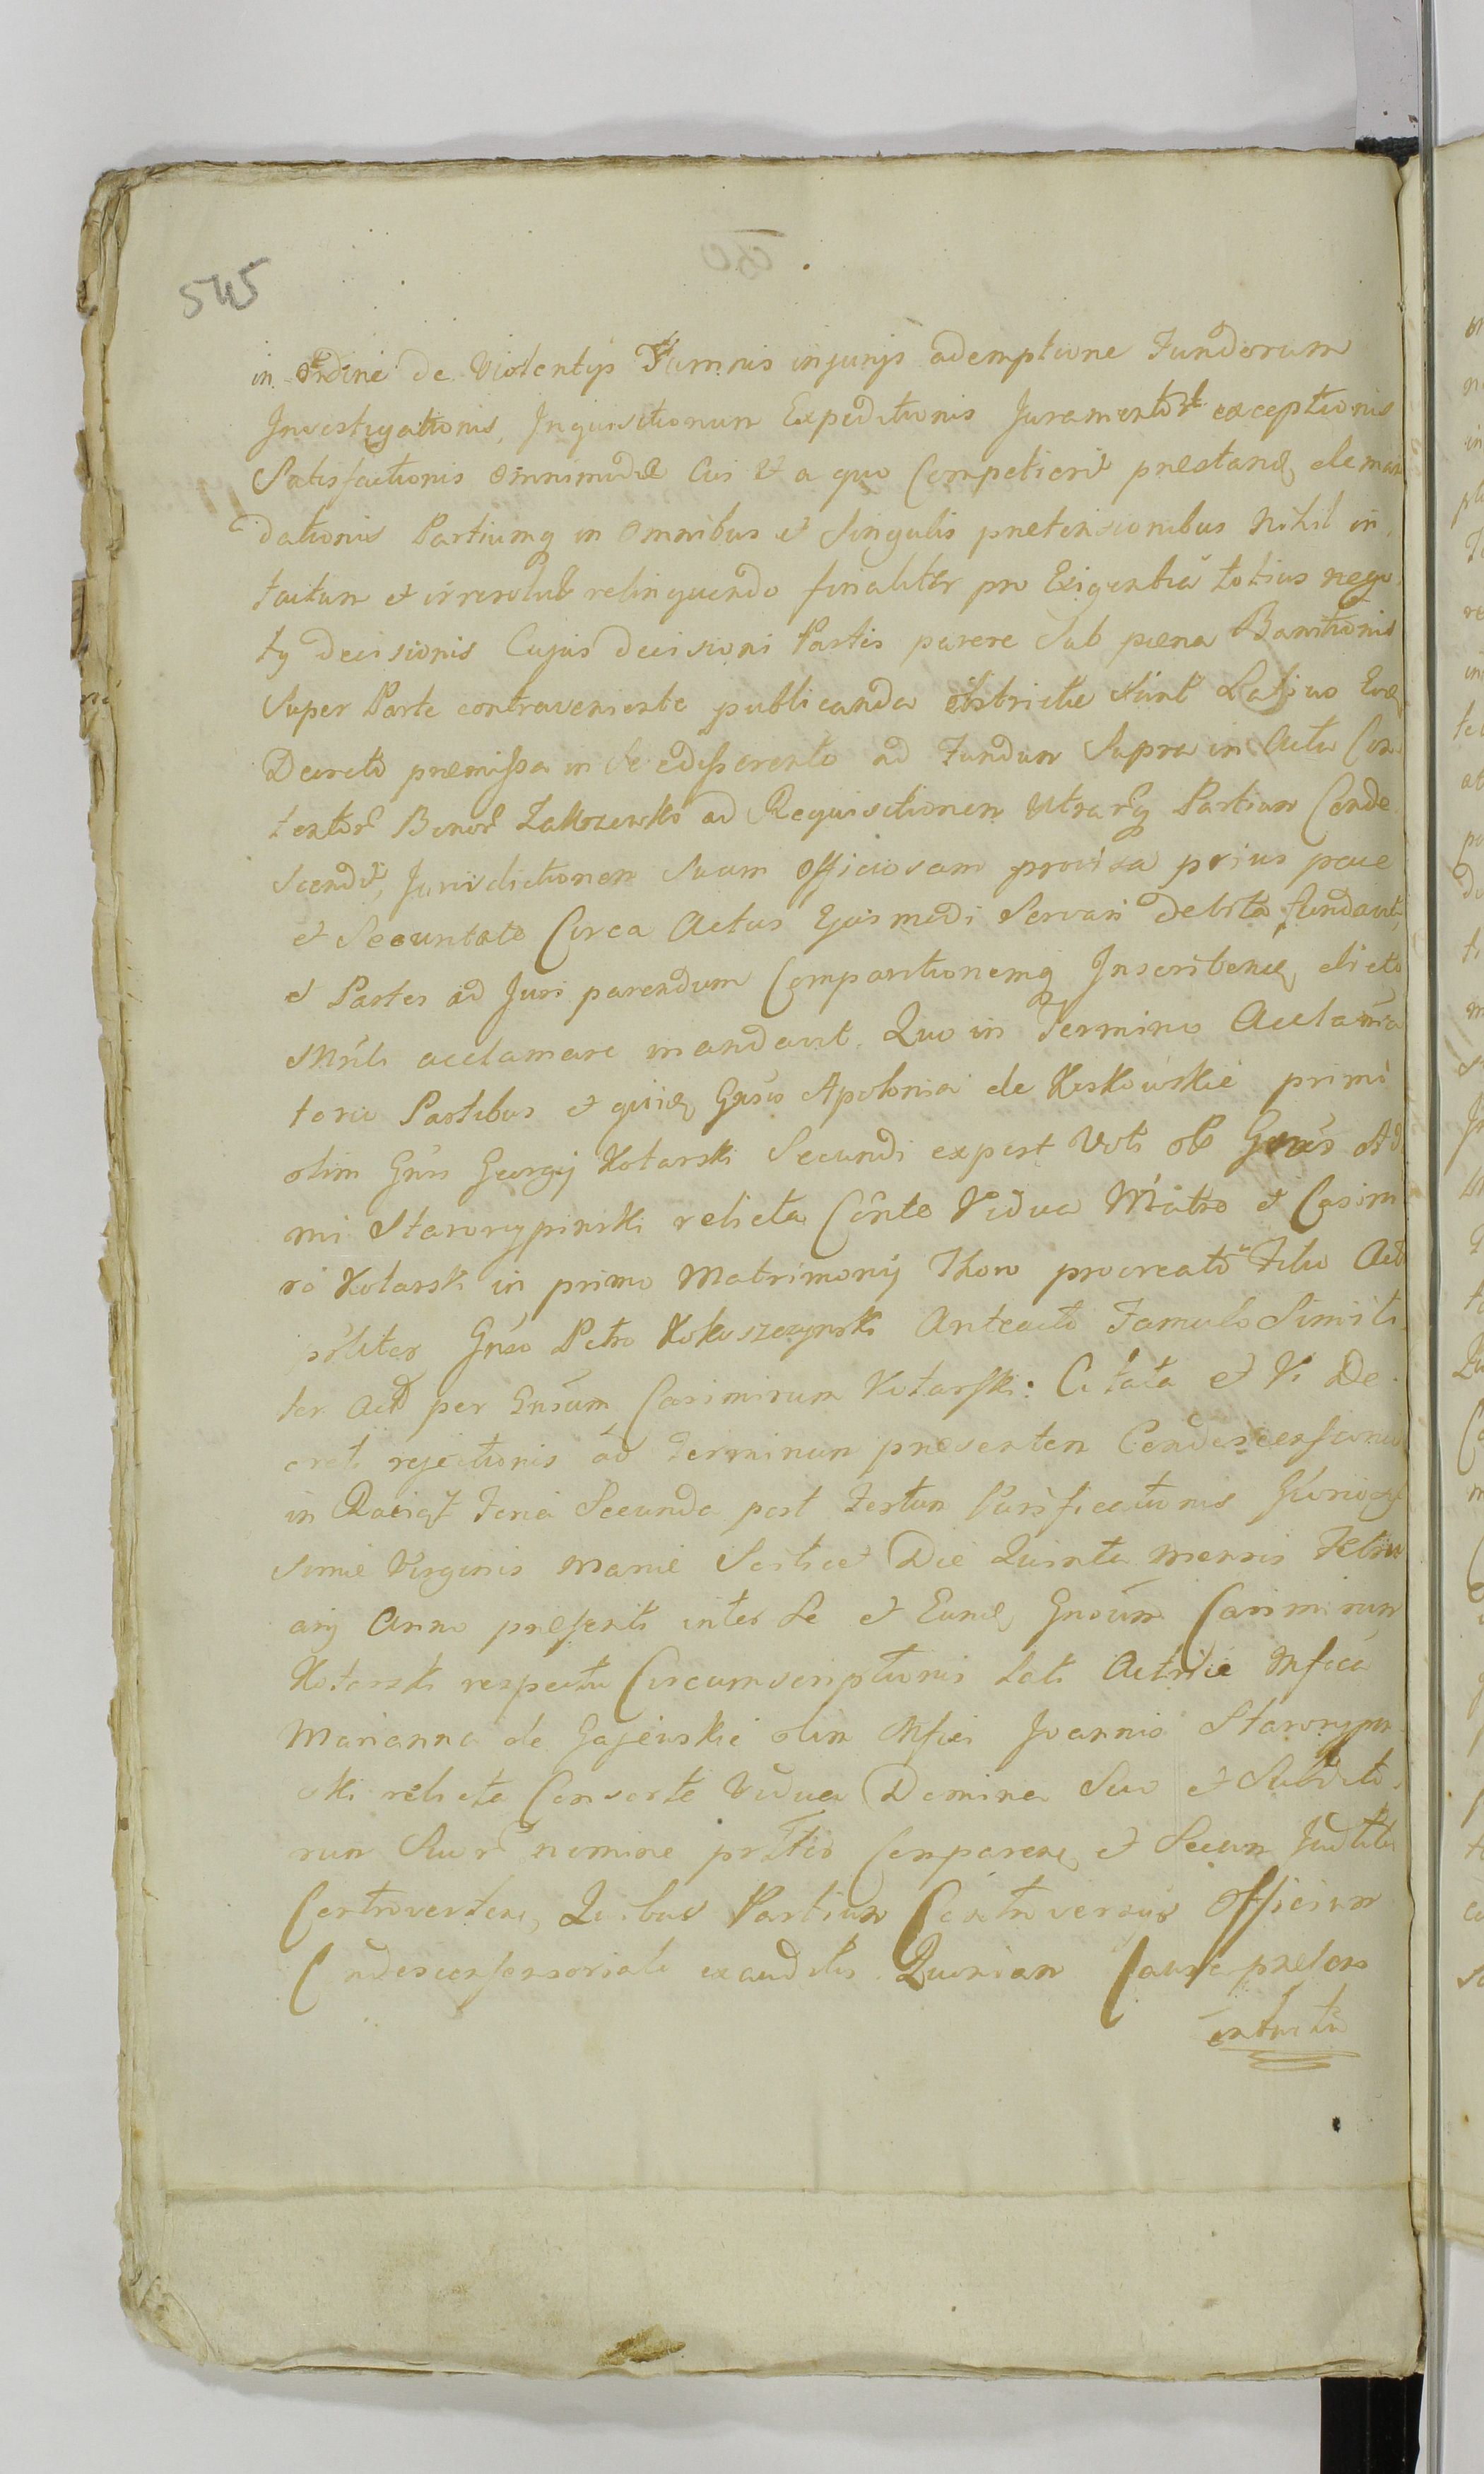 545
in ordine de Violentijs Damnis injurijs ademptione Fundorum
Investigationis, Inquisitionum Expeditionis Juramentor exceptionis
Satisfactionis omnimodæ Cui & a quo Competierit præstand, deman
dationis Partiumq in omnibus et Singulis prætensionibus Nihil in
tactum et irresolut relinquendo finaliter pro Exigentia totius nego
ty decisionis Cujus decisioni Partes parere Sub pæna Banitionis
Super Parte contraveniente publicanda obstrictæ sunt Latius
Decreto præmissa in Se edisserente ad Fundum Supra in Actu Con
tentor Bonor Zakrzewko ad Requisitionem Utrarq Partium Conde
scend, Jurisdictionem Suam Officiosam provisa prius pace
et Securitate Circa Actus Ejusmodi Servari Debita, fundavit,
et Partes ad Juri parendum Comparitionemq Inscribend, dicto
Mnli acclamare mandavit. Quo in Termino Acclama
toriæ Partibus et quid, Gnsa Apolonia de Koskowskie primi
olim Gnsi Georgij Kotarski Secundi expost Voti ob Gnsi Ad
mi Starorypinski relicta Conte Vidua Matre et Casim
ro Kotarski in primo Matrimonij Thoro procreato Filio Act
pnliter Gnso Petro Kokoszczynski Anteacto Famulo Simili
ter Act per Gnsum Casimirum Kotarski Citata et Vi De
creti rejectionis ad Terminum præsentem Condescensionis
in Feria Secunda post Festum Purificationis Gloriosis
simæ Virginis Mariæ Scilicet Die Quinta Mensis Febru
arij Anno præsenti inter Se et Eund, Gnsum Casimirum
Kotarski respectu Circumscriptionis lati Actrice Mfica
Marianna de Gajewskie olim Mfici Joannis Starorypin
ski relicta Consorte Vidua Domina Suo et Subdito
rum Suor nomine Comparen, et Secum Juditer
Controverten, Quibus Partium Controversijs Officium
Condescensoriale exauditis Quoniam Causa præsens
intuitu